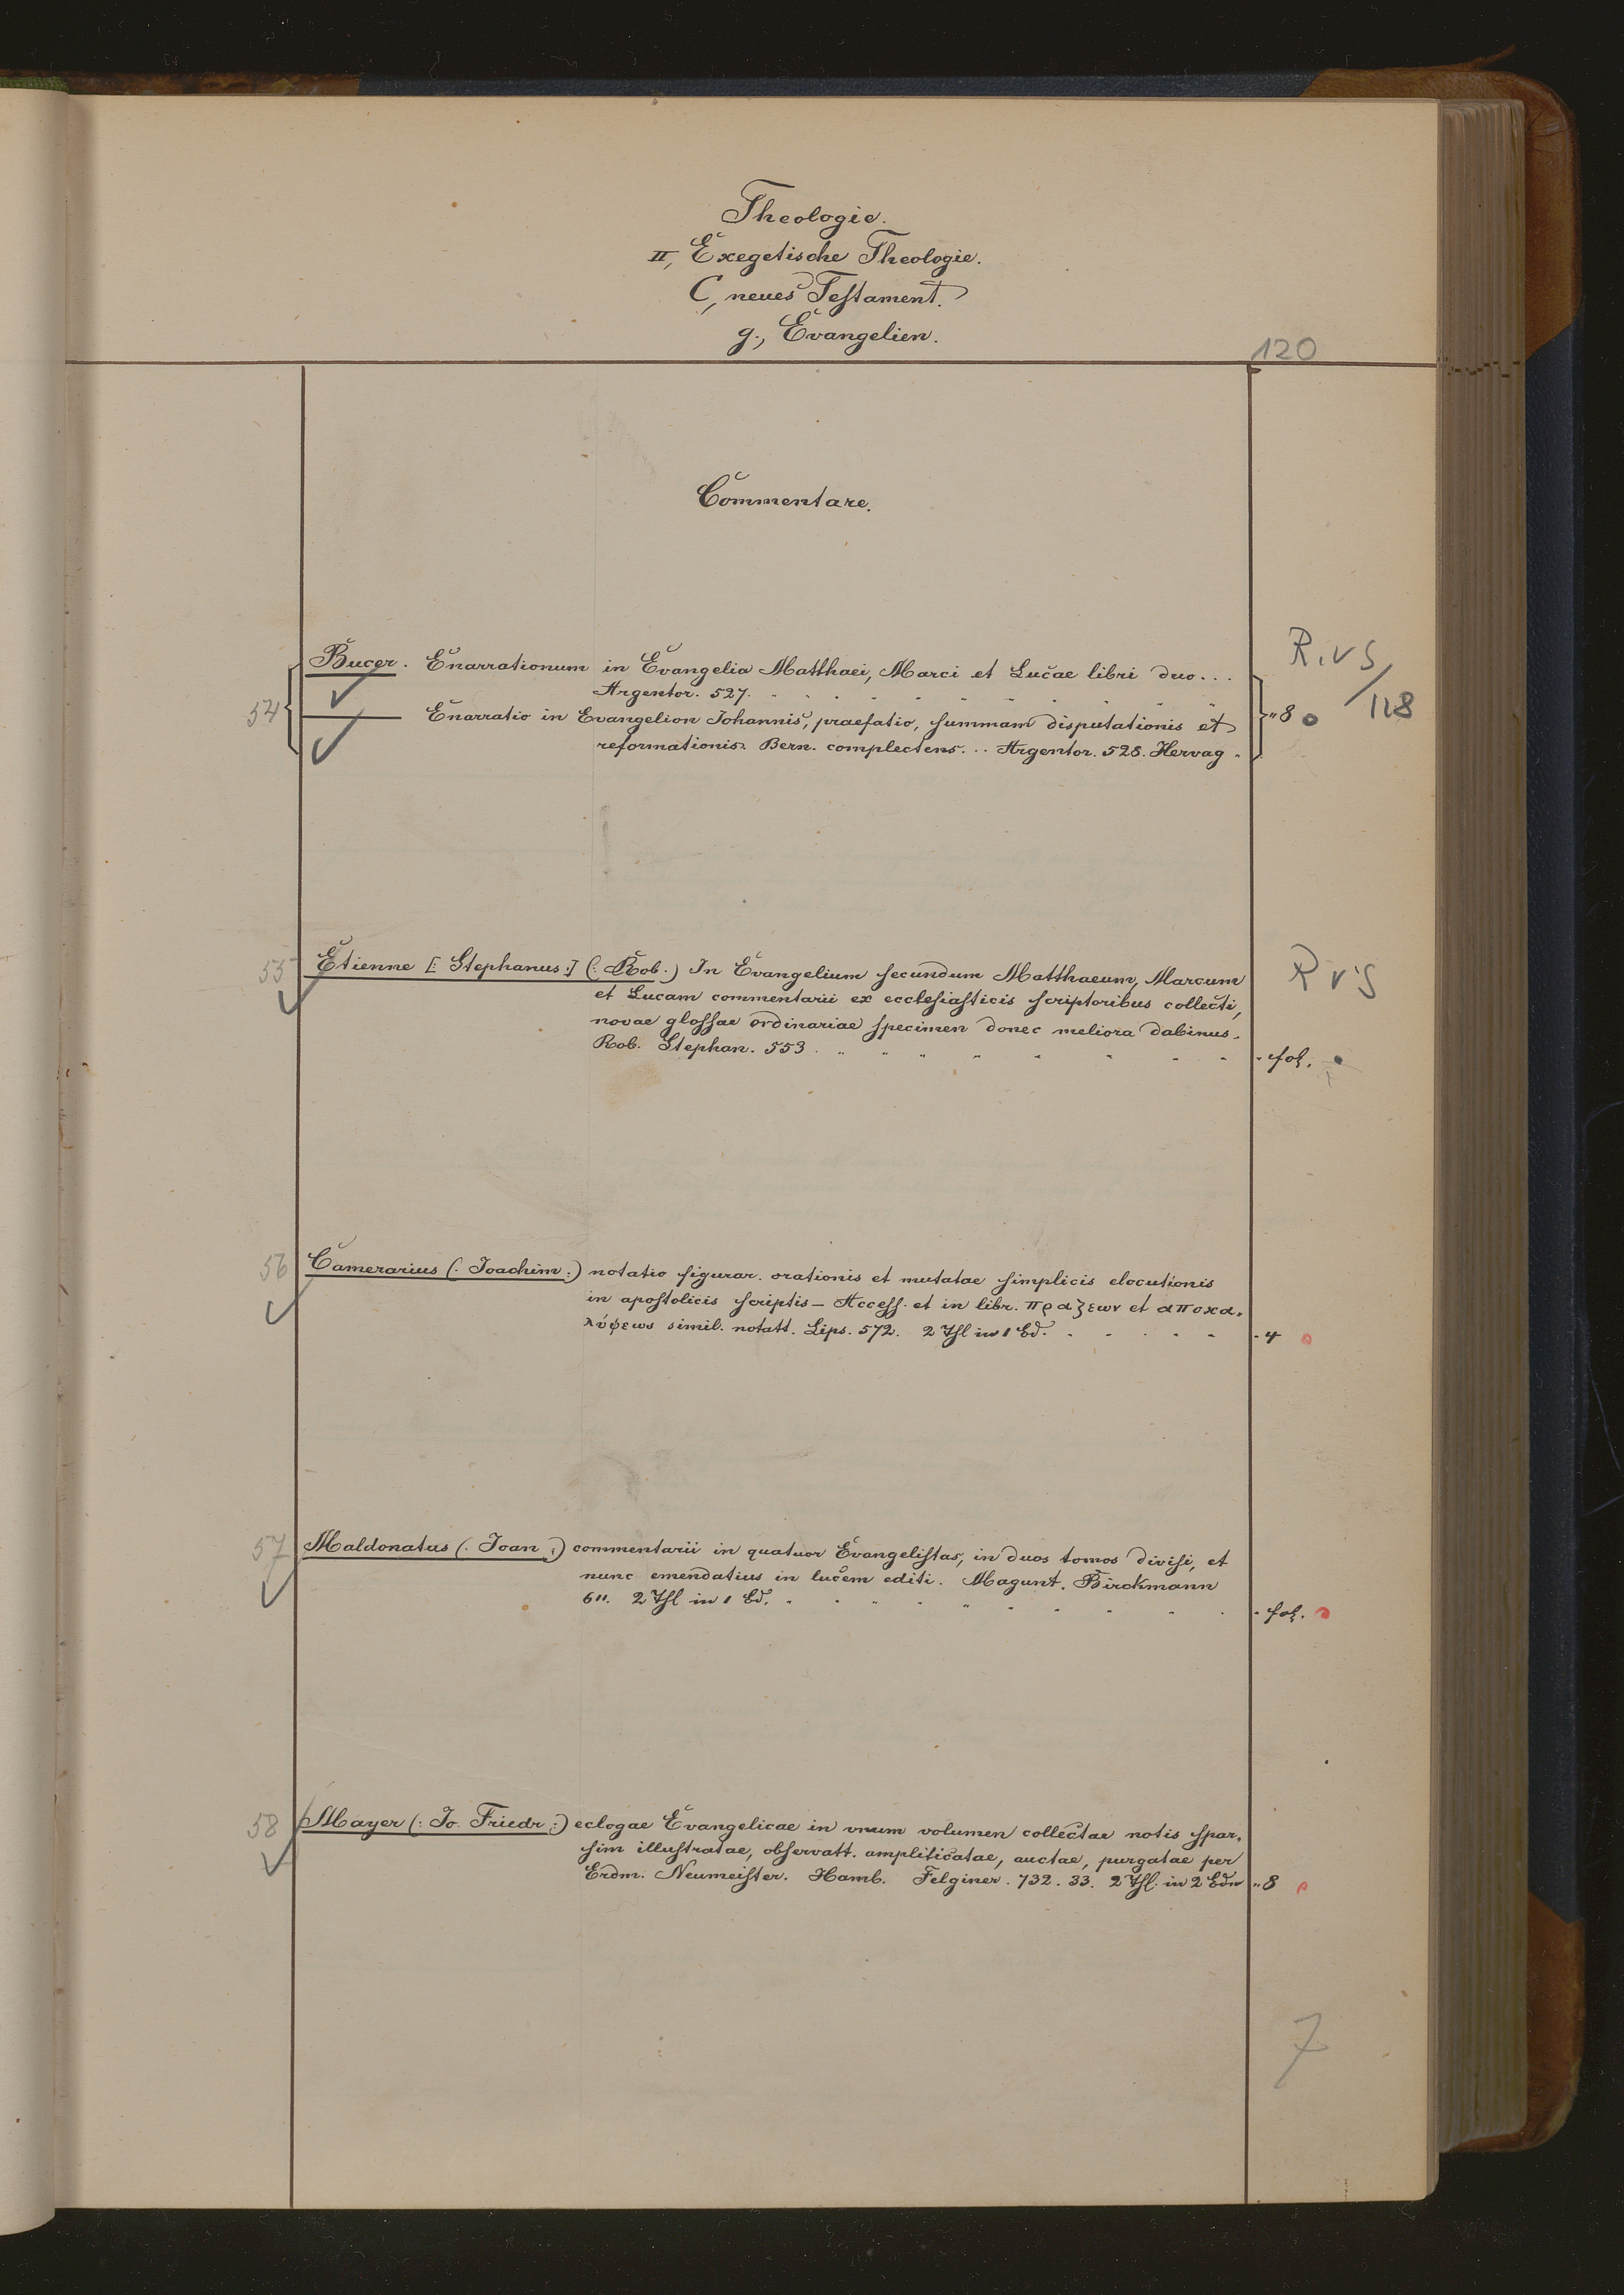 Theologie.
II, Exegetische Theologie.
C, neues Testament.
g., Evangelien.
120
Commentare.
R. v S / 118
54 Bucer. Enarrationum in Evangelia Matthaei, Marci et Lucae libri duo...
Argentor. 527.
——— Enarratio in Evangelion Johannis, praefatio, summam disputationis et
reformationis Bern. complectens... Argentor. 528. Hervag. " 8
55 Etienne [: Stephanus :] (: Rob.) In Evangelium secundum Matthaeum, Marcum R v S
et Lucam commentarii ex ecclesiasticis scriptoribus collecti,
novae glossae ordinariae specimen donec meliora dabinus.
Rob. Stephan. 553. " " " " " " " " fol.
56 Camerarius (: Joachim :) notatio figurar. orationis et mutatae simplicis elocutionis
in apostolicis scriptis – Access. et in libr. πραξεων et αποκα-
λύψεως simil. notatt. Lips. 572. 2 Thl in 1 Bd. - 4
57 Maldonatus (: Joan :) commentarii in quatuor Evangelistas, in duos tomos divisi, et
nunc emendatius in lucem editi. Magunt. Birckmann
611. 2 Thl in 1 Bd. - fol.
58 Mayer (: Jo. Friedr :) eclogae Evangelicae in vnum volumen collectae notis spar-
sim illustratae, observatt. amplificatae, auctae, purgatae per
Erdm. Neumeister. Hamb. Felginer. 732. 33. 2 Thl. in 2 Bdn " 8
7